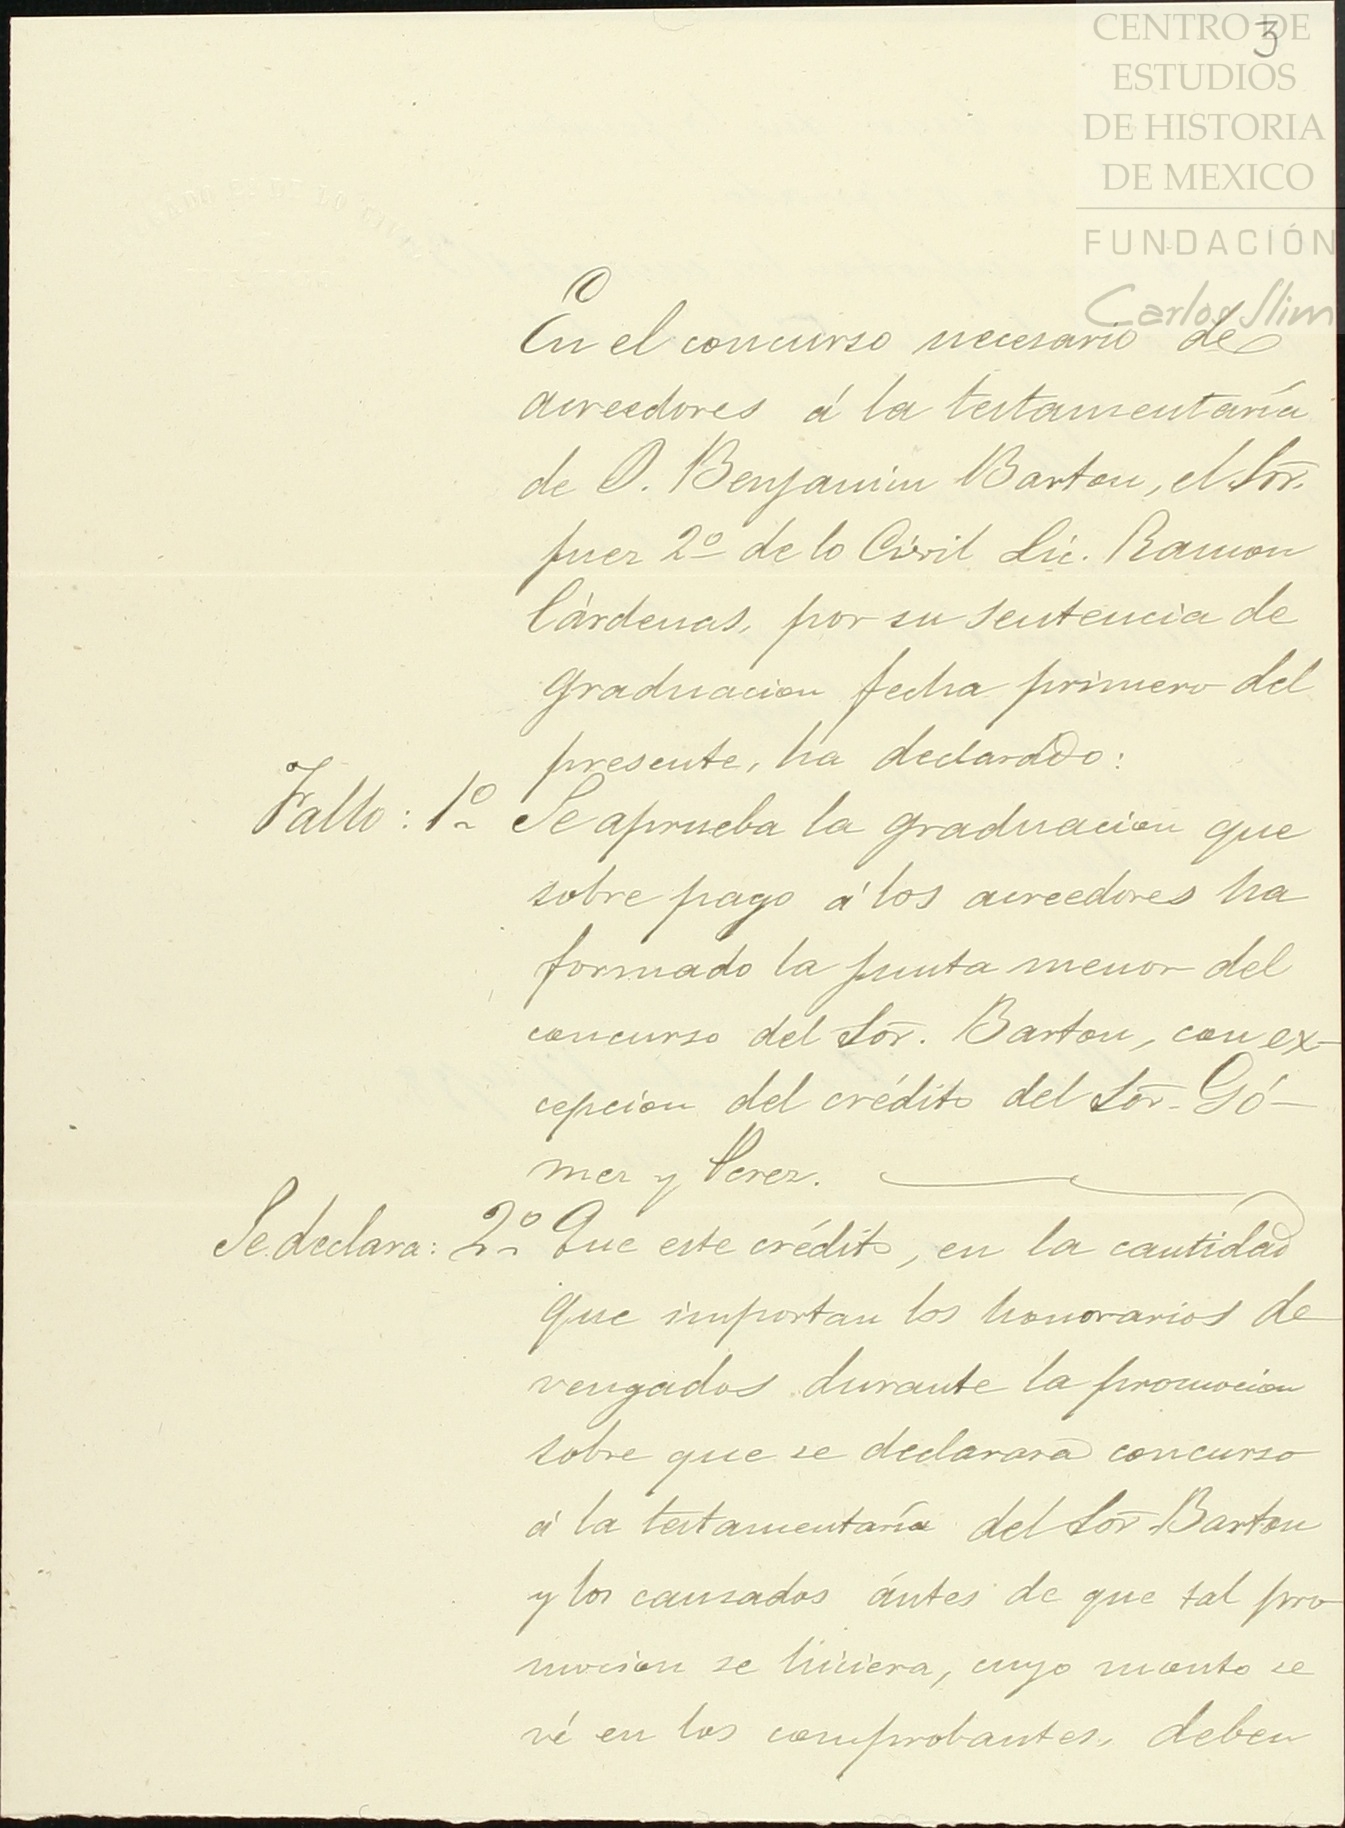 3
CENTRO DE
ESTUDIOS
DE HISTORIA
DE MEXICO
FUNDACIÓN
Carlos Slim
En el concurso necesario de
acreedores á la testamentaría
de D. Benjamin Barton, el Sor.
juez 2º de lo Civil Lic. Ramon
Cárdenas, por su sentencia de
graduacion fecha primero del
presente, ha declarado:
Fallo: 1º Se aprueba la graduacion que
sobre pago á los acreedores ha
formado la junta menor del
concurso del Sor. Barton, con ex-
cepcion del crédito del Sor. Gó-
mez y Perez.
Se declara: 2º Que este crédito, en la cantidad
que importan los honorarios de
vengados durante la promocion
sobre que se declarara concurso
á la testamentaría del Sor Barton
y los causados ántes de que tal pro
mocion se hiciera, cuyo monto se
vé en los comprobantes, deben